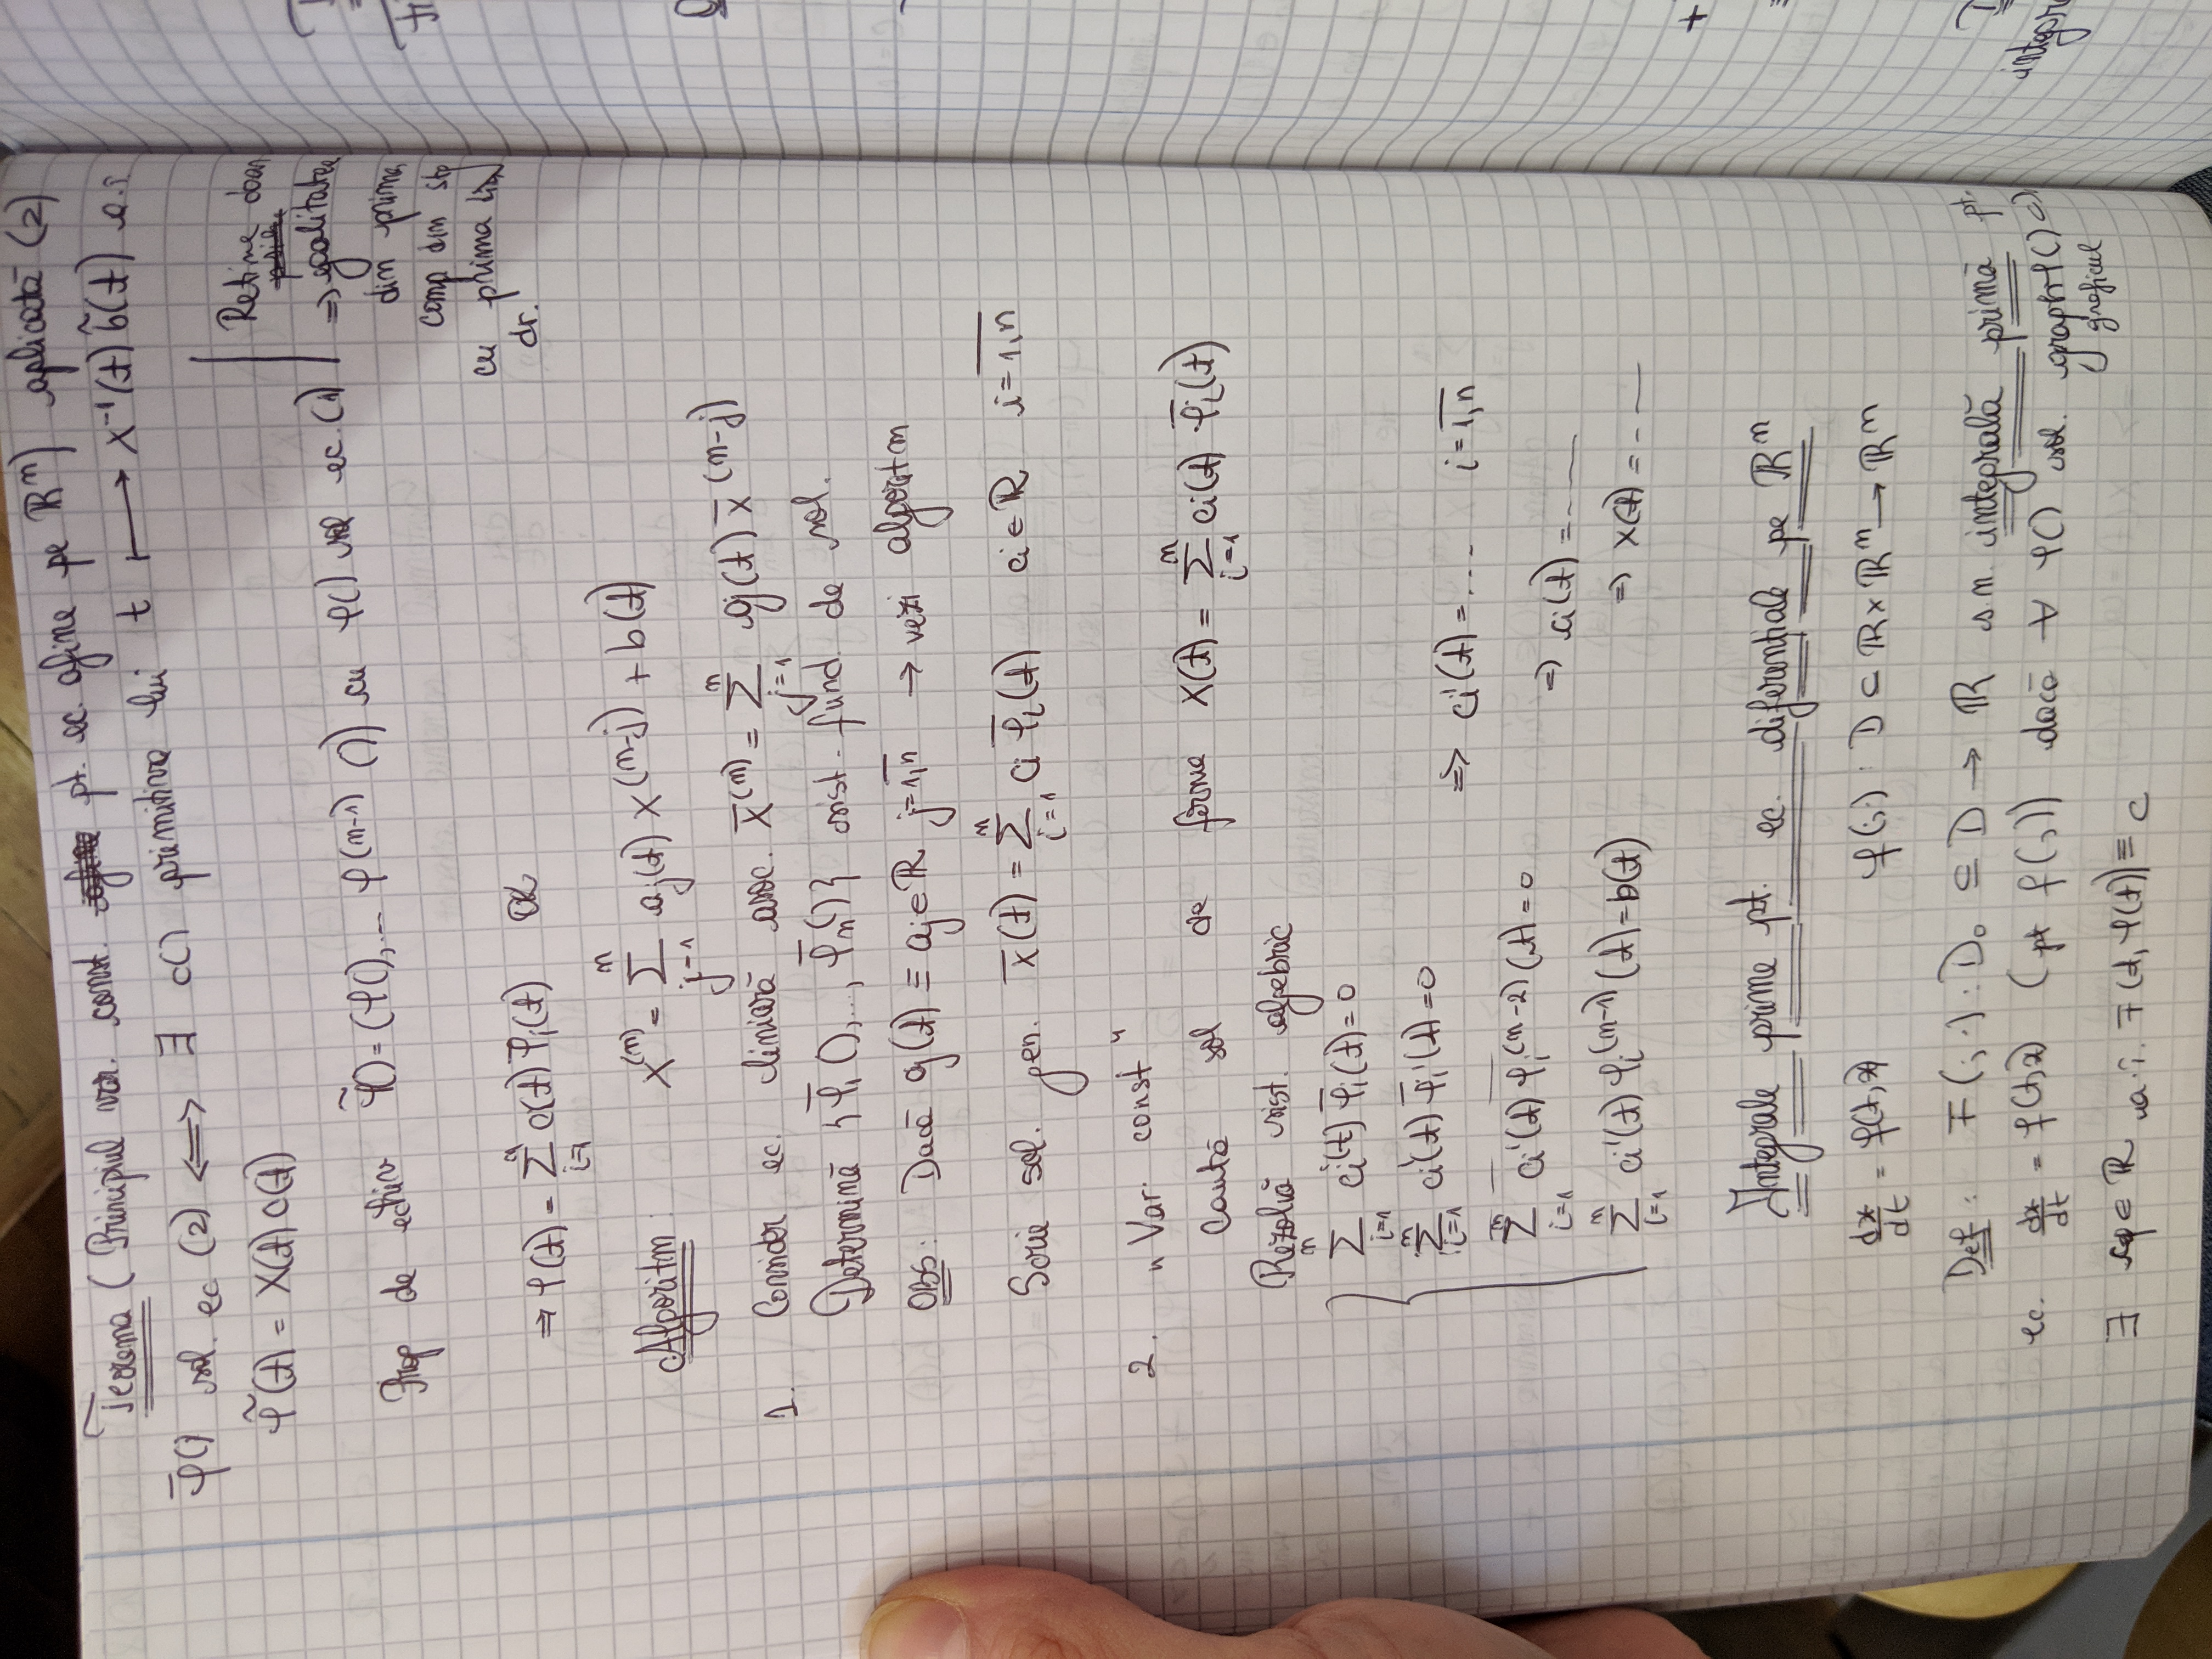 Teorema (Principiul var. const. pt. ec. afine pe ℝⁿ) aplicată (2)
φ̄() sol. ec (2) ⟺ ∃ c() primitiva lui t ⟼ X⁻¹(t) b̃(t) a.î.
φ̃(t) = X(t) c(t)
Prop de echiv φ̃() = (φ(),... φ^(n-1) ()) cu φ() sol ec. (1)
Retine doar
⇒ egalitatea
din prima
comp din stg
cu prima lin
dr.
⇒ φ(t) = Σ_{i=1}^{n} c(t) φ̄ᵢ(t) OK
Algoritm: x^(n) = Σ_{j=1}^{n} aj(t) x^(n-j) + b(t)
1. Consider ec. liniară asoc. x̄^(n) = Σ_{j=1}^{n} aj(t) x̄^(n-j)
Determină {φ̄₁(),..., φ̄n()} sist. fund. de sol.
OBS: Dacă aj(t) ≡ aj ∈ ℝ j=1,n → vezi algoritm
Scrie sol. gen. x̄(t) = Σ_{i=1}^{n} ci φ̄ᵢ(t) ci ∈ ℝ i = 1,n
2. „Var. const"
Caută sol de forma x(t) = Σ_{i=1}^{n} ci(t) φ̄ᵢ(t)
Rezolvă sist. algebric
Σ_{i=1}^{n} ci'(t) φ̄ᵢ(t) = 0
Σ_{i=1}^{n} ci'(t) φ̄ᵢ'(t) = 0
⇒ ci'(t) = .... i = 1,n
Σ_{i=1}^{n} ci'(t) φ̄ᵢ^(n-2) (t) = 0
⇒ ci(t) = ----
Σ_{i=1}^{n} ci'(t) φᵢ^(n-1) (t) = b(t)
⇒ x(t) = ---
Integrale prime pt. ec. diferențiale pe ℝⁿ
dx/dt = f(t,x) f(·,·) : D ⊂ ℝ×ℝⁿ → ℝⁿ
Def: F(·,·) : D₀ ⊆ D → ℝ s.n. integrală primă pt.
ec. dx/dt = f(t,x) (pt f(·,·)) dacă ∀ φ() sol. graph φ() ⊂
graficul
∃ cφ ∈ ℝ a.î. F(t, φ(t)) ≡ c